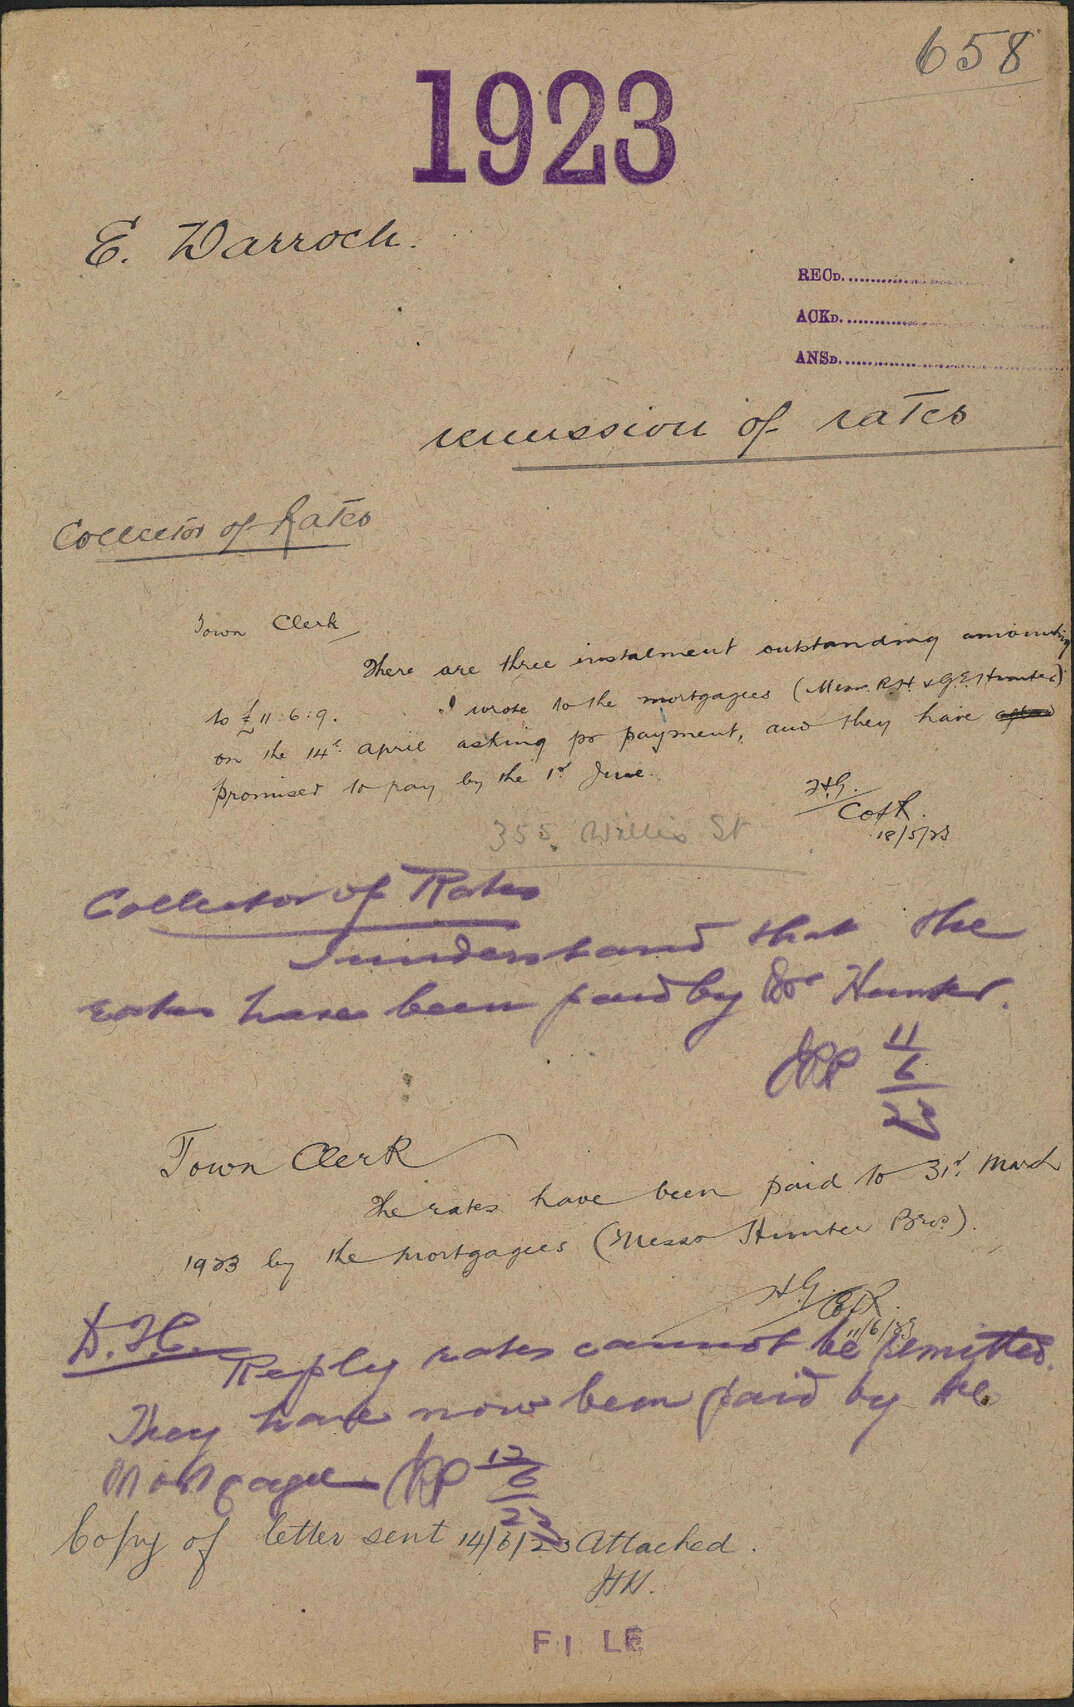 658
1923
E. Warroch.
RECD.
ACKD.
ANSD.
remission of rates
Collector of Rates
Town Clerk
There are three instalment outstanding amounting
to £11:6:9. I wrote to the mortgagees (Messrs. R.H & G.E. Hunter)
on the 14th April asking for payment, and they have
promised to pay by the 1st June.
H.G.
CofR.
18/5/23
355 Willis St
Collector of Rates
I understand that the
rates have been paid by Dr Hunter.
JRP 11
6
23
Town Clerk
The rates have been paid to 31st March
1923 by the mortgagees (Messrs Hunter Bros.).
H.G.
CofR.
11/6/23
D.T.C.
Reply rates cannot be remitted.
They have now been paid by the
Mortgagee JRP 12
6
23
Copy of letter sent 14/6/23 Attached.
FILE